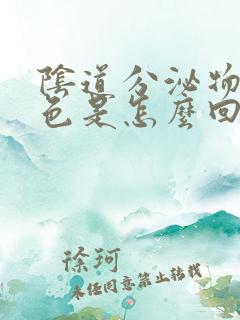 陰道分泌物
色是怎麼回
徐珂
未经同意禁止转载